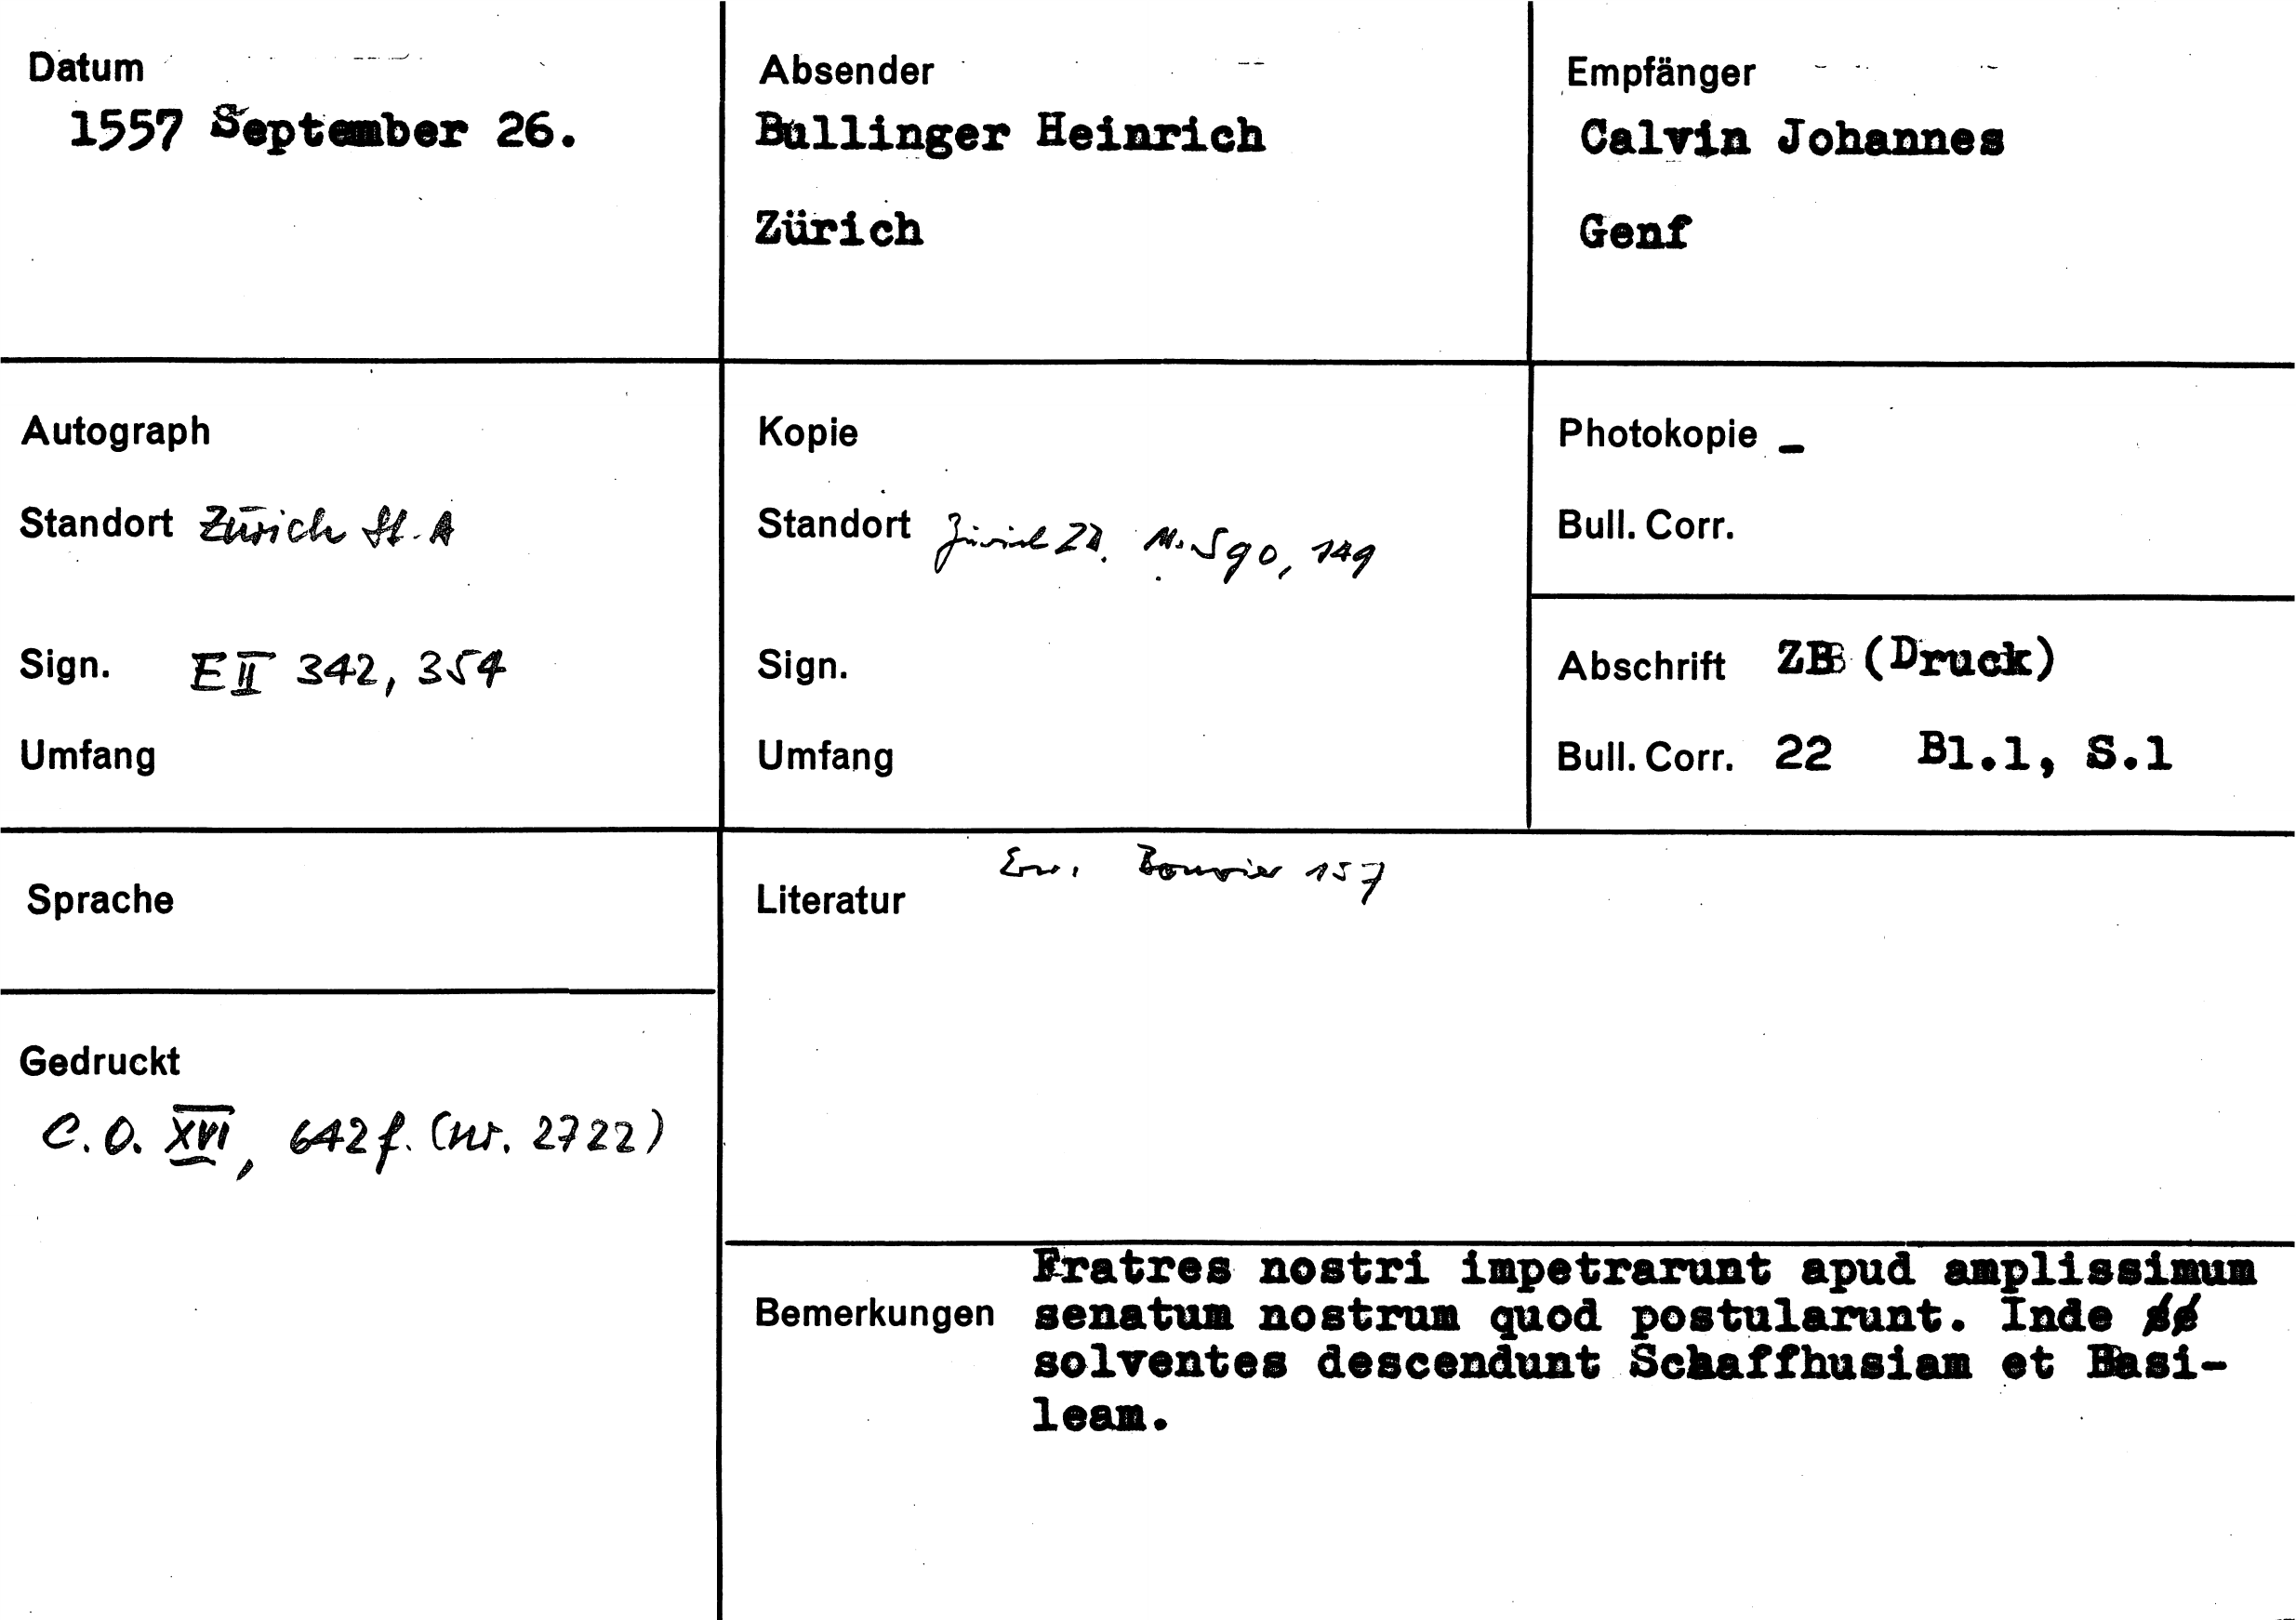 Datum
1557 September 26.
Absender
Bullinger Heinrich
Zürich
Empfänger
Calvin Johannes
Genf
Autograph
Standort Zürich St. A
Sign. E II 342, 354
Umfang
Kopie
Standort Zürich ZB. Ms S 90, 149
Sign.
Umfang
Photokopie -
Bull. Corr.
Abschrift ZB (Druck)
Bull. Corr. 22 Bl.1, S.1
Sprache
Gedruckt
C. O. XVI, 642 f. (nr. 2722)
Literatur
Erw. Bouvier 157
Bemerkungen
Fratres nostri impetrarunt apud amplissimum
senatum nostrum quod postularunt. Inde
solventes descendunt Schaffhusiam et Basi-
leam.